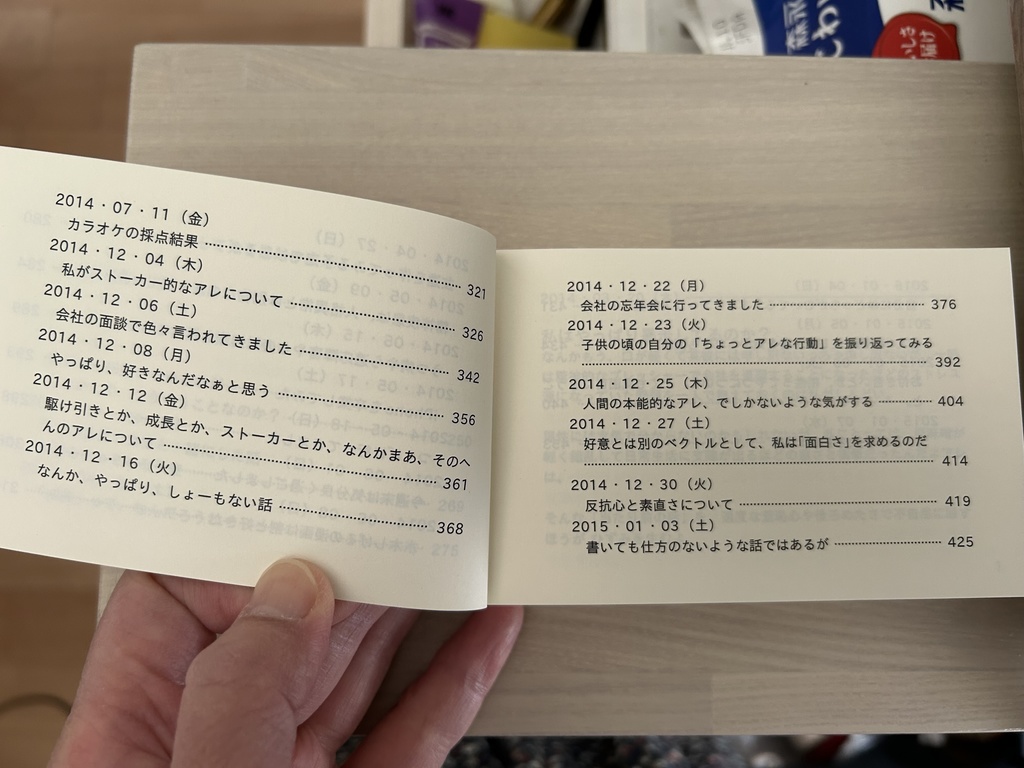 2014・07・11（金）
カラオケの採点結果 321
2014・12・04（木）
私がストーカー的なアレについて 326
2014・12・06（土）
会社の面談で色々言われてきました 342
2014・12・08（月）
やっぱり、好きなんだなぁと思う 356
2014・12・12（金）
駆け引きとか、成長とか、ストーカーとか、なんかまあ、そのへ
んのアレについて 361
2014・12・16（火）
なんか、やっぱり、しょーもない話 368
2014・12・22（月）
会社の忘年会に行ってきました 376
2014・12・23（火）
子供の頃の自分の「ちょっとアレな行動」を振り返ってみる
392
2014・12・25（木）
人間の本能的なアレ、でしかないような気がする 404
2014・12・27（土）
好意とは別のベクトルとして、私は「面白さ」を求めるのだ
414
2014・12・30（火）
反抗心と素直さについて 419
2015・01・03（土）
書いても仕方のないような話ではあるが 425